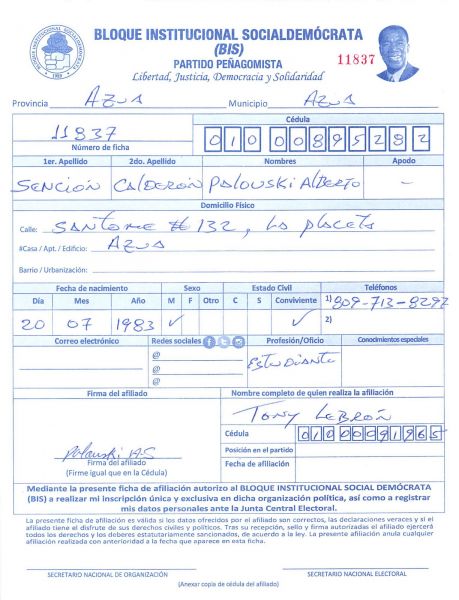 BLOQUE INSTITUCIONAL SOCIALDEMÓCRATA
(BIS)
PARTIDO PEÑAGOMISTA
11837
Libertad, Justicia, Democracia y Solidaridad
BLOQUE INSTITUCIONAL SOCIALDEMÓCRATA
1989
Provincia AZUA Municipio AZUA
11837
Número de ficha
Cédula
010 0089528 2
1er. Apellido 2do. Apellido Nombres Apodo
SENCIÓN CALDERÓN PALOUSKI ALBERTO —
Domicilio Físico
Calle: SANTOME # 132, LA PLACETA
#Casa / Apt. / Edificio: AZUA
Barrio / Urbanización:
Fecha de nacimiento Sexo Estado Civil Teléfonos
Día Mes Año M F Otro C S Conviviente 1) 809-713-8297
20 07 1983 ✓ ✓ 2)
Correo electrónico Redes sociales Profesión/Oficio Conocimientos especiales
@ Estudiante
@
@
Firma del afiliado Nombre completo de quien realiza la afiliación
TONY LEBRÓN
Cédula 01000091965
Polouski A.S
Firma del afiliado
(Firme igual que en la Cédula)
Posición en el partido
Fecha de afiliación
Mediante la presente ficha de afiliación autorizo al BLOQUE INSTITUCIONAL SOCIAL DEMÓCRATA
(BIS) a realizar mi inscripción única y exclusiva en dicha organización política, así como a registrar
mis datos personales ante la Junta Central Electoral.
La presente ficha de afiliación es válida si los datos ofrecidos por el afiliado son correctos, las declaraciones veraces y si el
afiliado tiene el disfrute de sus derechos civiles y políticos. Tras su recepción, sello y firma autorizadas el afiliado ejercerá
todos los derechos y los deberes estatutariamente sancionados, de acuerdo a la ley. La presente afiliación anula cualquier
afiliación realizada con anterioridad a la fecha que aparece en esta ficha.
SECRETARIO NACIONAL DE ORGANIZACIÓN SECRETARIO NACIONAL ELECTORAL
(Anexar copia de cédula del afiliado)